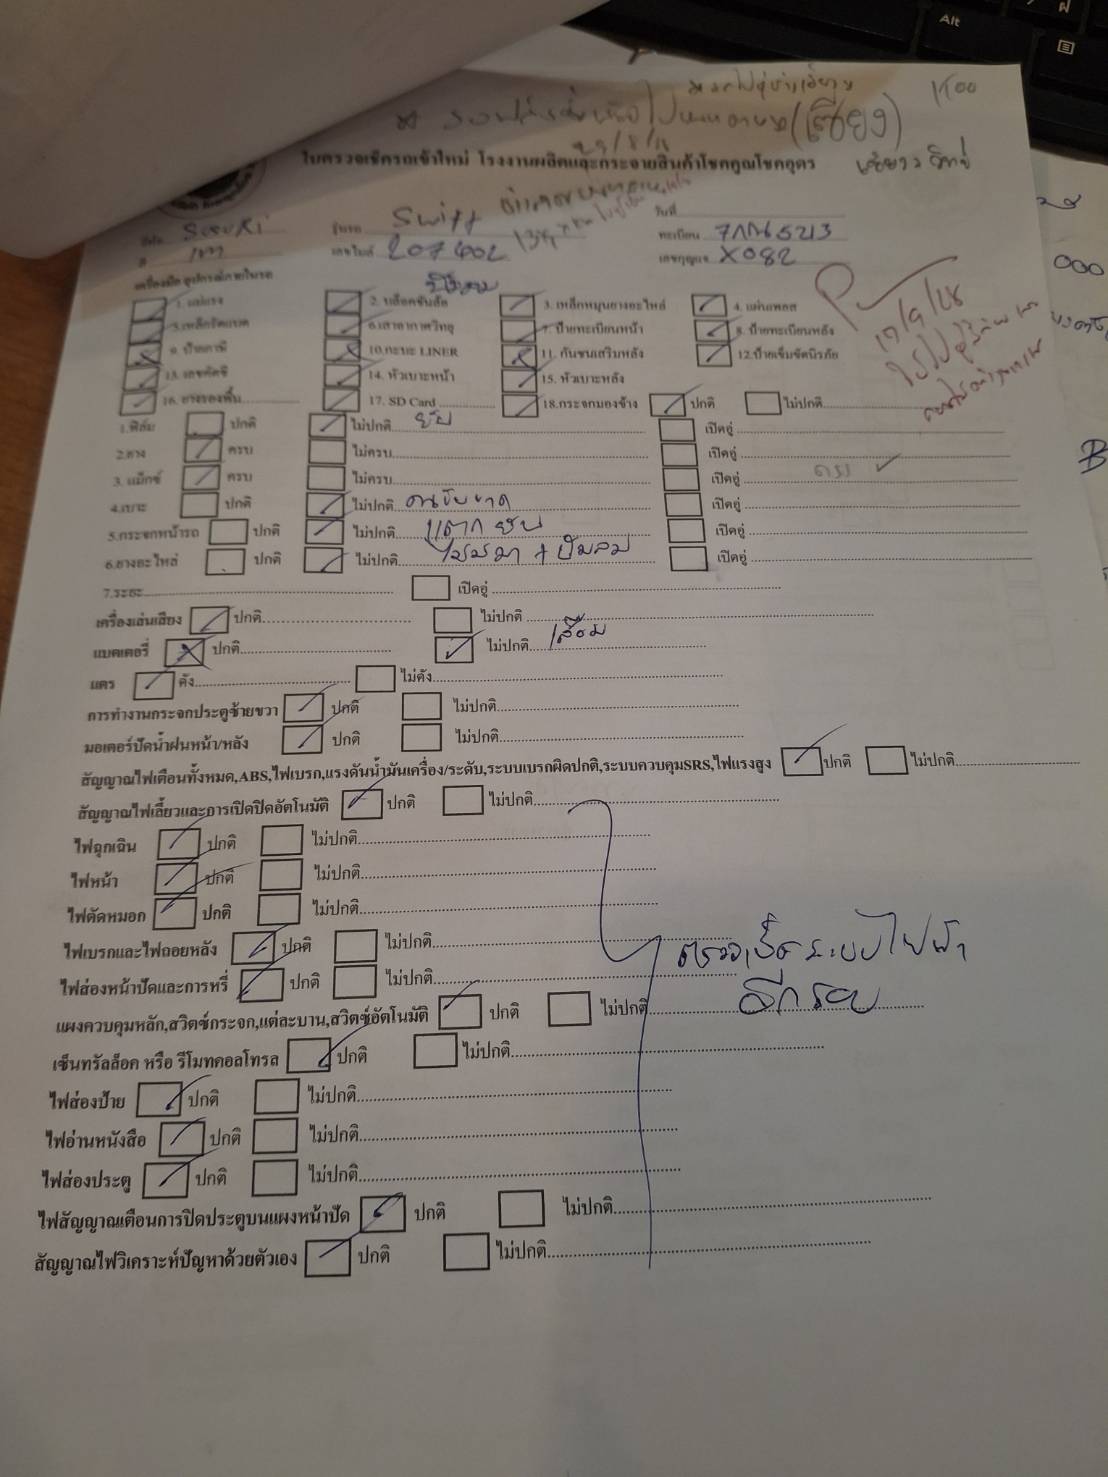 Alt
(เสียง)
ใบตรวจเช็ครถเข้าใหม่ โรงงานผลิตและกระจายสินค้าโชคคูณโชคอุดร
ยี่ห้อ SUZUKI รุ่นรถ Swift วันที่
สี เทา เลขไมล์ 207402 ทะเบียน 7กณ5213
เลขกุญแจ X082
เครื่องมือ อุปกรณ์ภายในรถ
1. แม่แรง 2. บล็อคขันล้อ 3. เหล็กหมุนยางอะไหล่ 4. แผ่นเพลส
6.เสาอากาศวิทยุ 7. ป้ายทะเบียนหน้า 8. ป้ายทะเบียนหลัง
9. ป้ายภาษี 10.กะบะ LINER 11. กันชนเสริมหลัง 12.ป้ายเข็มขัดนิรภัย
13. เลขคัสซี 14. หัวเบาะหน้า 15. หัวเบาะหลัง
16. ยางรองพื้น 17. SD Card 18.กระจกมองข้าง ปกติ ไม่ปกติ
1.ฟิล์ม ปกติ ไม่ปกติ ยับ เปิดอู่
2.ยาง ครบ ไม่ครบ เปิดอู่
3. แม็กซ์ ครบ ไม่ครบ เปิดอู่
4.เบาะ ปกติ ไม่ปกติ คนขับขาด เปิดอู่
5.กระจกหน้ารถ ปกติ ไม่ปกติ แตก เปิดอู่
6.ยางอะไหล่ ปกติ ไม่ปกติ ไม่มีมา + ปั๊มลม เปิดอู่
7.ระยะ เปิดอู่
เครื่องเล่นเสียง ปกติ ไม่ปกติ
แบตเตอรี่ ปกติ ไม่ปกติ เสื่อม
แตร ดัง ไม่ดัง
การทำงานกระจกประตูซ้ายขวา ปกติ ไม่ปกติ
มอเตอร์ปัดน้ำฝนหน้า/หลัง ปกติ ไม่ปกติ
สัญญาณไฟเตือนทั้งหมด,ABS,ไฟเบรก,แรงดันน้ำมันเครื่อง/ระดับ,ระบบเบรกผิดปกติ,ระบบควบคุมSRS,ไฟแรงสูง ปกติ ไม่ปกติ
สัญญาณไฟเลี้ยวและการเปิดปิดอัตโนมัติ ปกติ ไม่ปกติ
ไฟฉุกเฉิน ปกติ ไม่ปกติ
ไฟหน้า ปกติ ไม่ปกติ
ไฟตัดหมอก ปกติ ไม่ปกติ
ไฟเบรกและไฟถอยหลัง ปกติ ไม่ปกติ
ตรวจเช็คระบบไฟฟ้า
ไฟส่องหน้าปัดและการหรี่ ปกติ ไม่ปกติ
อีกรอบ
แผงควบคุมหลัก,สวิตซ์กระจก,แต่ละบาน,สวิตซ์อัตโนมัติ ปกติ ไม่ปกติ
เซ็นทรัลล็อค หรือ รีโมทคอลโทรล ปกติ ไม่ปกติ
ไฟส่องป้าย ปกติ ไม่ปกติ
ไฟอ่านหนังสือ ปกติ ไม่ปกติ
ไฟส่องประตู ปกติ ไม่ปกติ
ไฟสัญญาณเตือนการปิดประตูบนแผงหน้าปัด ปกติ ไม่ปกติ
สัญญาณไฟวิเคราะห์ปัญหาด้วยตัวเอง ปกติ ไม่ปกติ